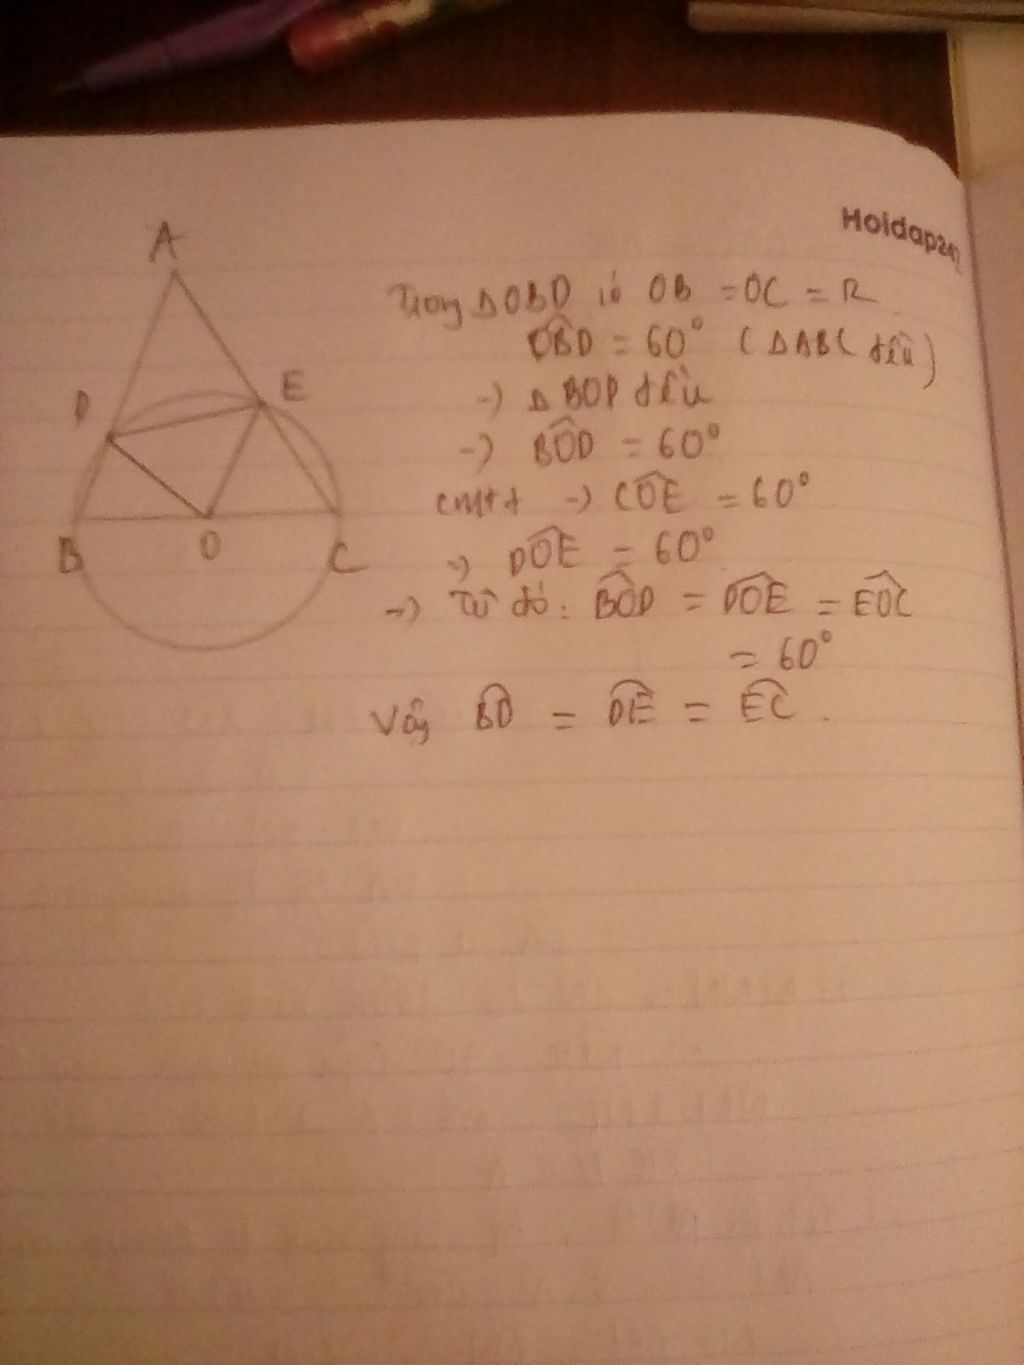 Holdap247
A
D
E
B
O
C
Trong ΔOBD có OB = OC = R
OBD = 60° (ΔABC đều)
-) ΔBOD đều
-) BOD = 60°
cmtt -) COE = 60°
-) DOE = 60°
-) Từ đó: BOD = DOE = EOC
= 60°
Vậy BD = DE = EC.